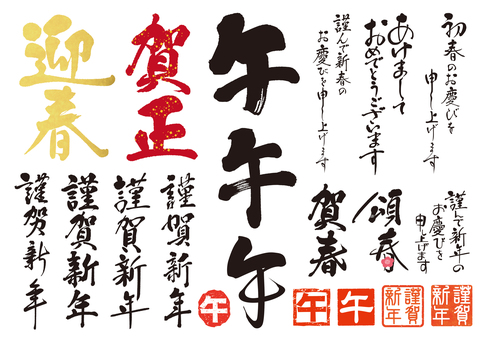 初春のお慶びを
申し上げます
あけまして
おめでとうございます
謹んで新春の
お慶びを申し上げます
午
午
午
賀正
迎春
謹んで新年の
お慶びを
申し上げます
頌春
賀春
謹賀新年
謹賀新年
謹賀新年
謹賀新年
謹賀
新年
謹賀
新年
午
午
午